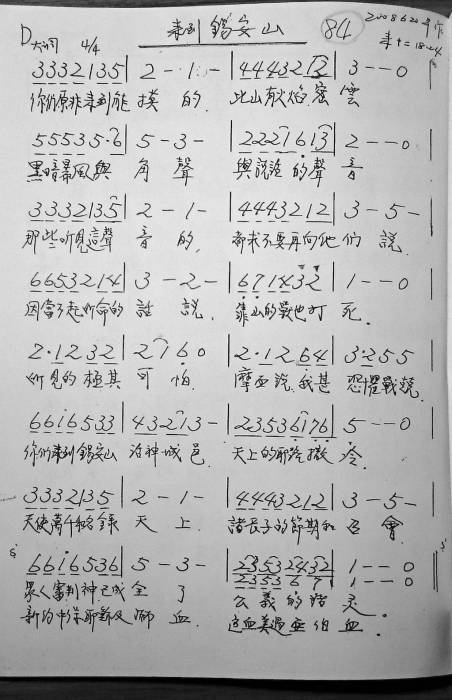 來到錫安山 84 2008 6 20
D大調 4/4 來十二18-24
3332135 | 2 - 1 - | 4443212 | 3 - - 0
你们原非來到能 摸 的. 此山有火焰.密 雲
55535·6 | 5 - 3 - | 2221613 | 2 - - 0
黑暗暴風與 角 聲 與說話的聲 音
3332135 | 2 - 1 - | 4443212 | 3 - 5 -
那些听見這聲 音 的. 都求不要再向他 们 說.
6653214 | 3 - 2 - | 671432 | 1 - - 0
因當不起所命的 話 說. 靠山的獸也打 死.
2·1232 | 2760 | 2·1264 | 3·255
所見的極其 可 怕. 摩西說.我甚 恐懼戰兢.
6616533 | 43213- | 23536176 | 5 - - 0
你们來到錫安山 活神城邑. 天上的耶路撒 冷.
3332135 | 2 - 1 - | 4443212 | 3 - 5 -
天使萬千和名錄 天 上. 諸長子的節期和 召 會.
6616536 | 5 - 3 - | 23532432 | 1 - - 0
235367 | 1 - - 0
眾人審判神.已成 全 了 公義的諸 灵
新約中保耶穌及 洒 血. 這血美過亚伯 血.